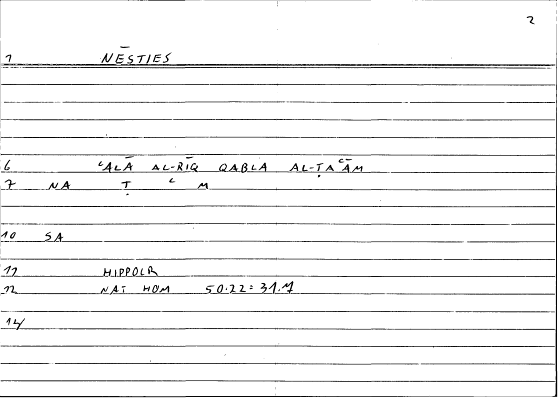 2
1 NĒSTIES
6 ʿALĀ AL-RĪQ QABLA AL-ṬAʿĀM
7 NA Ṭ ʿ M
10 SA
11 HIPPOLR
12 NAT HOM 50.22 = 31.1
14